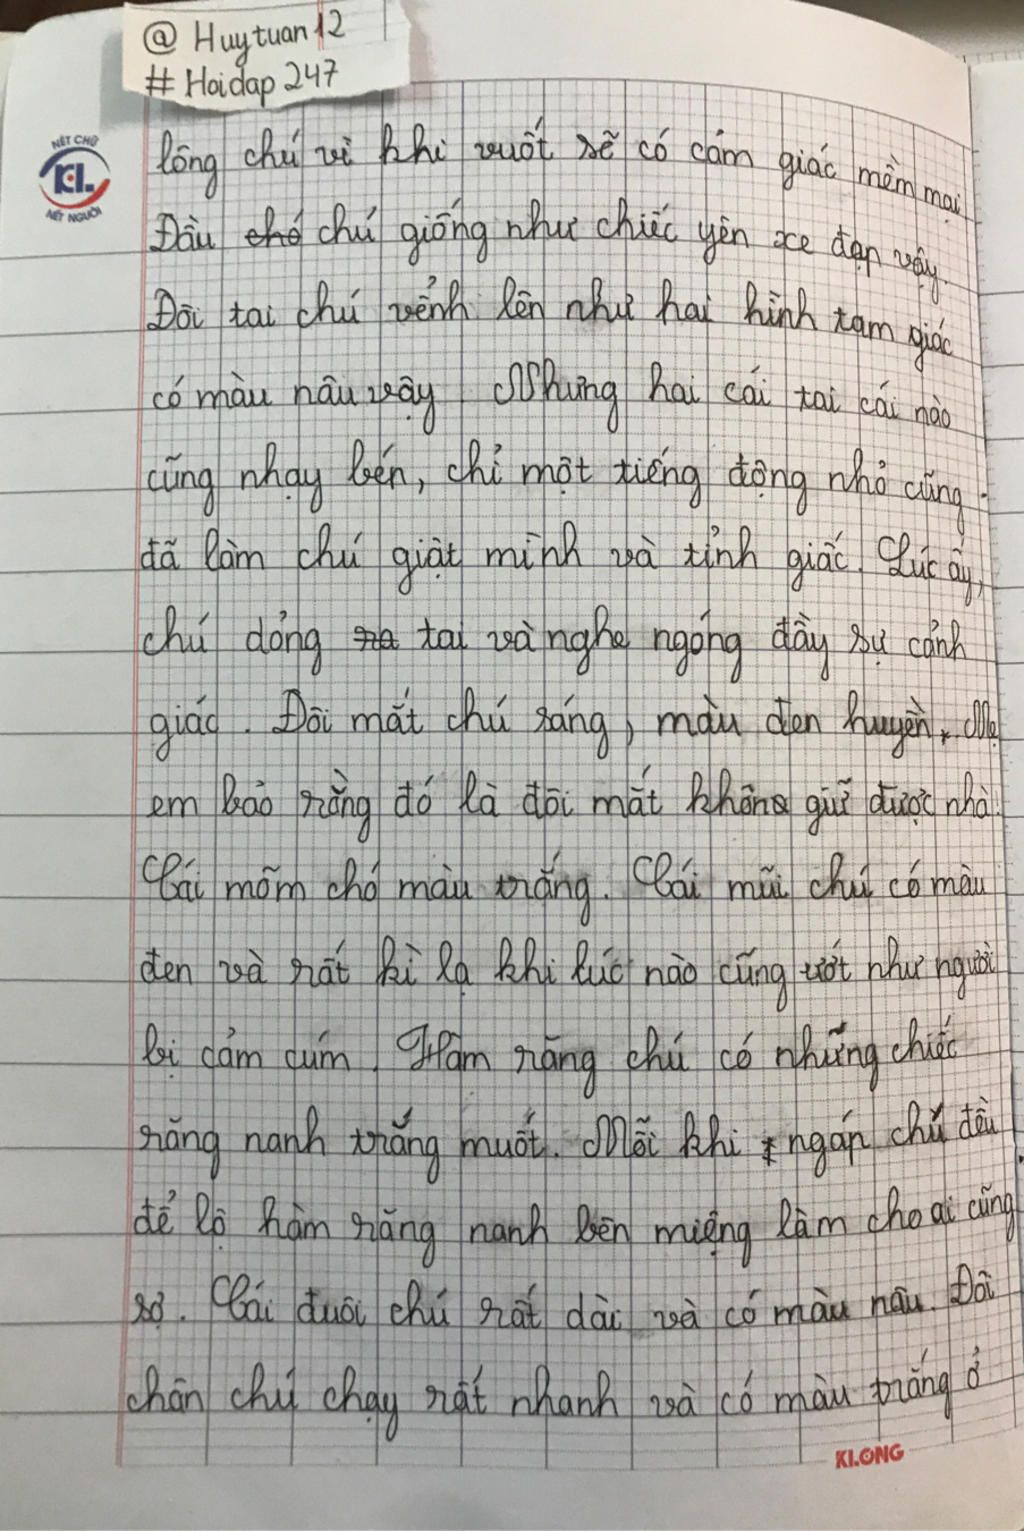 @ Huytuan12
# Hoidap 247
NÉT CHỮ
KL.
NẾT NGƯỜI
lông chú vì khi vuốt sẽ có cảm giác mềm mại
Đầu chó chú giống như chiếc yên xe đạp vậy.
Đôi tai chú vểnh lên như hai hình tam giác
có màu nâu vậy. Nhưng hai cái tai cái nào
cũng nhạy bén, chỉ một tiếng động nhỏ cũng
đã làm chú giật mình và tỉnh giấc. Lúc ấy,
chú dỏng ra tai và nghe ngóng đầy sự cảnh
giác. Đôi mắt chú sáng, màu đen huyền, Mẹ
em bảo rằng đó là đôi mắt không giữ được nhà.
Cái mõm chó màu trắng. Cái mũi chú có màu
đen và rất kì lạ khi lúc nào cũng ướt như người
bị cảm cúm. Hàm răng chú có những chiếc
răng nanh trắng muốt. Mỗi khi ngáp chú đều
để lộ hàm răng nanh bên miệng làm cho ai cũng
sợ. Cái đuôi chú rất dài và có màu nâu. Đôi
chân chú chạy rất nhanh và có màu trắng ở
KLONG